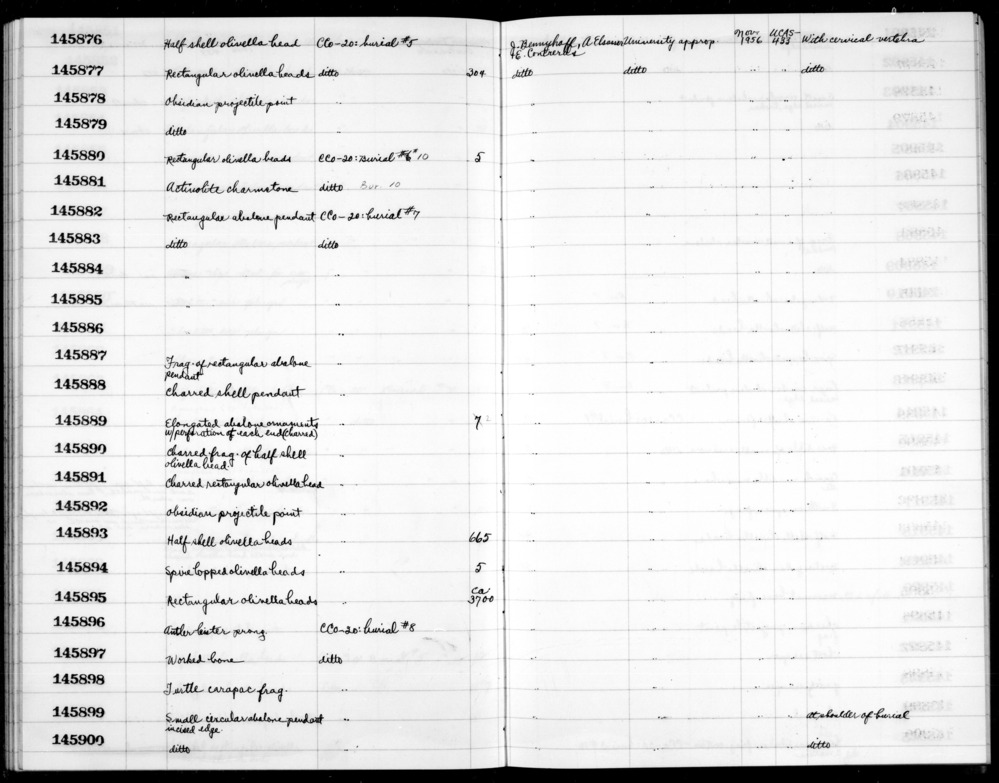 145876 Half shell olivella bead CCo-20: burial #5 J. Bennyhoff, A. Elsasser University approp. Nov. 1956 UCAS-433 With cervical vertebra
& E. Contreras
145877 Rectangular olivella beads ditto 304 ditto ditto " " ditto
145878 Obsidian projectile point " " " " " "
145879 ditto " " " " " "
145880 Rectangular olivella beads CCo-20: Burial #6 #10 5 " " " " "
145881 Actinolite charmstone ditto Bur. 10 " " " " "
145882 Rectangular abalone pendant CCo-20: burial #7 " " " "
145883 ditto ditto " " " "
145884 " " " " " "
145885 " " " " " "
145886 " " " " "
145887 Frag. of rectangular abalone " " " " "
pendant
145888 Charred shell pendant " " " " "
145889 Elongated abalone ornaments " 7 " " " "
w/perforation of each end (charred)
145890 Charred frag. of half shell " " " " "
olivella bead
145891 Charred rectangular olivella bead " " " " "
145892 Obsidian projectile point " " " " "
145893 Half shell olivella beads " 665 " " " "
145894 Spire lopped olivella beads " 5 " " " "
145895 Rectangular olivella beads " ca 3700 " " " "
145896 Antler prong CCo-20: burial #8 " " " "
145897 Worked bone ditto " " " "
145898 Turtle carapac frag. " " " " "
145899 Small circular abalone pendant " " " " " at shoulder of burial
incised edge
145900 ditto " " " " " ditto